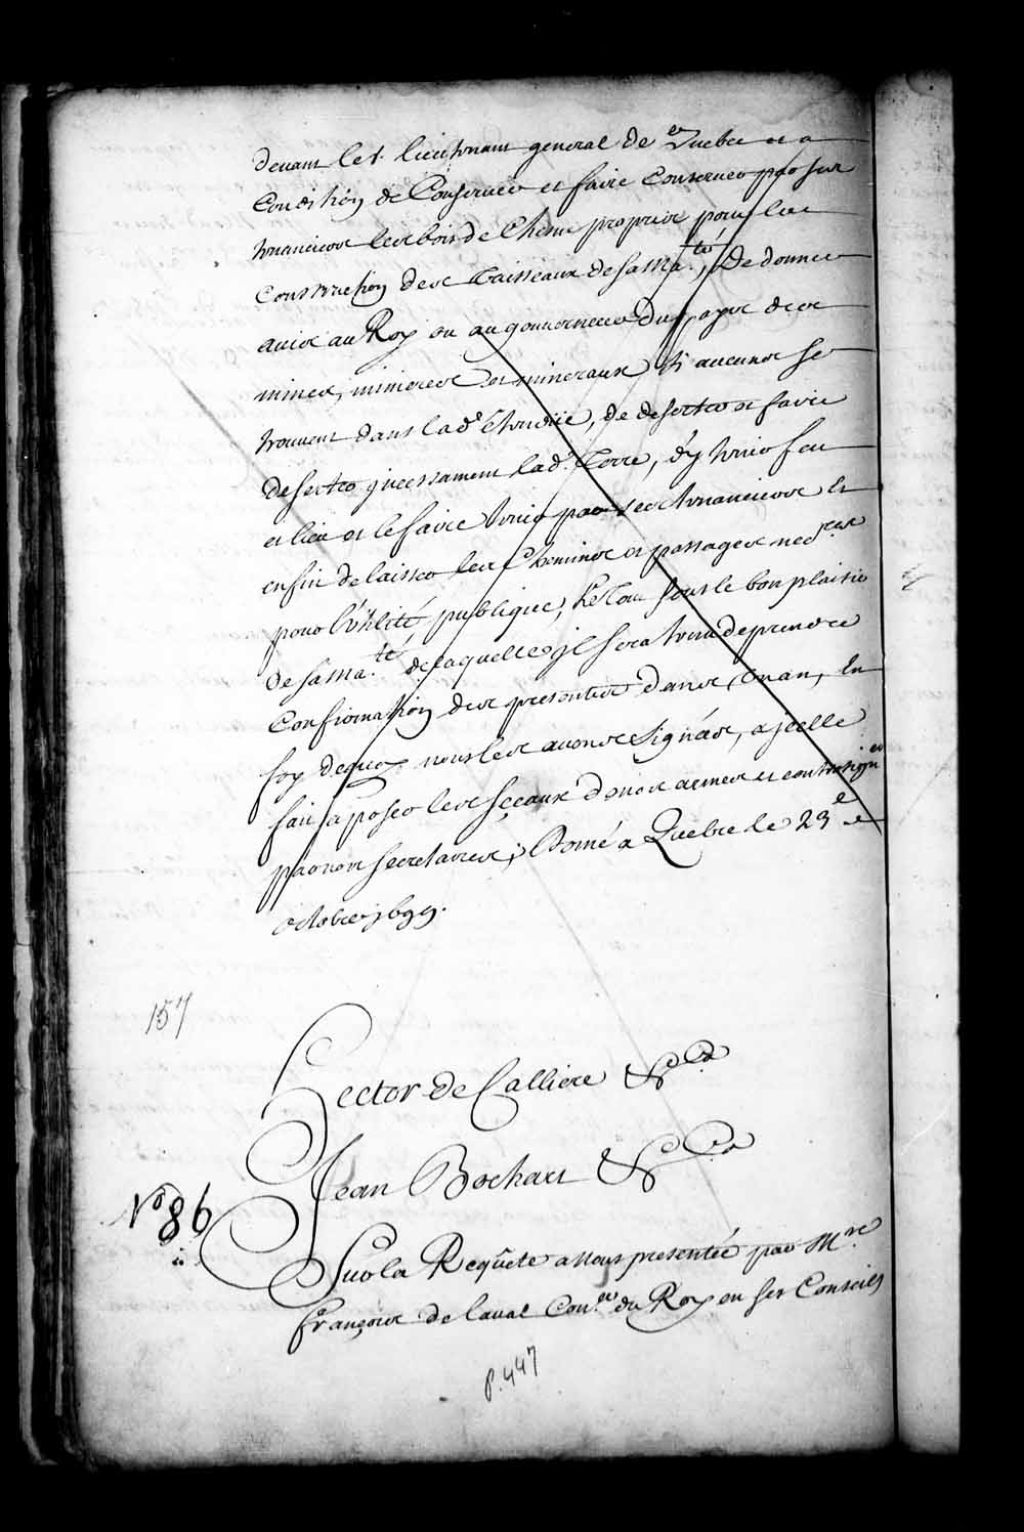 devant le Sr. lieutenant general de Quebec et a
Condition de Conserver et faire Conserver par ses
tenanciers les bois de Chesne propres pour la
Construction des Vaisseaux de sa Ma.té, De donner
avis au Roy ou au gouverneur du pays des
mines, minieres et mineraux si aucuns se
trouvent dans lad.e étendüe, de deserter et faire
deserter jncessament lad.e Terre, d'y tenir feu
et lieu et le faire tenir par ses tenanciers Et
enfin de laisser les Chemins et passages neces.res
pour l'utilité publique, Le Tout sous le bon plaisir
de sa Ma.té de laquelle jl sera tenu de prendre
Confirmation des presentes dans un an, En
foy dequoy nous les avons signées, a jcelle
fait aposer les sceaux de nos armes et contresigner
par nos secretaires; Donné a Quebec le 23e
octobre 1699.
157
Hector de Calliere &c.a
Jean Bochart &c.a
No 86
Sur la Requête a nous presentée par M.re
françois de laval Con.er du Roy en ses Conseils
p. 447